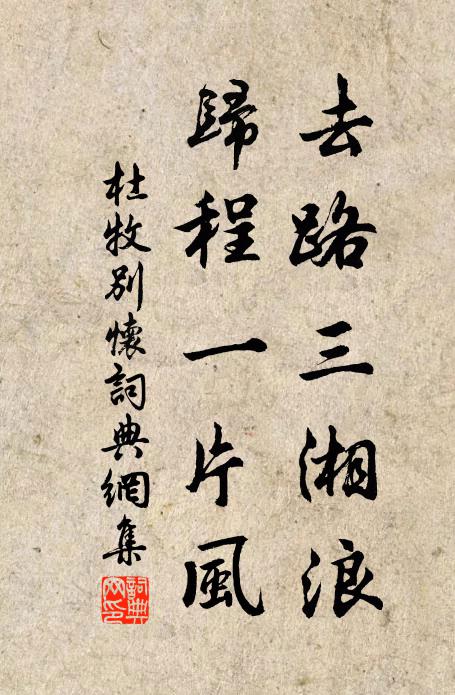 去路三湘浪
歸程一片風
杜牧別懷詞典網集
詞典网印